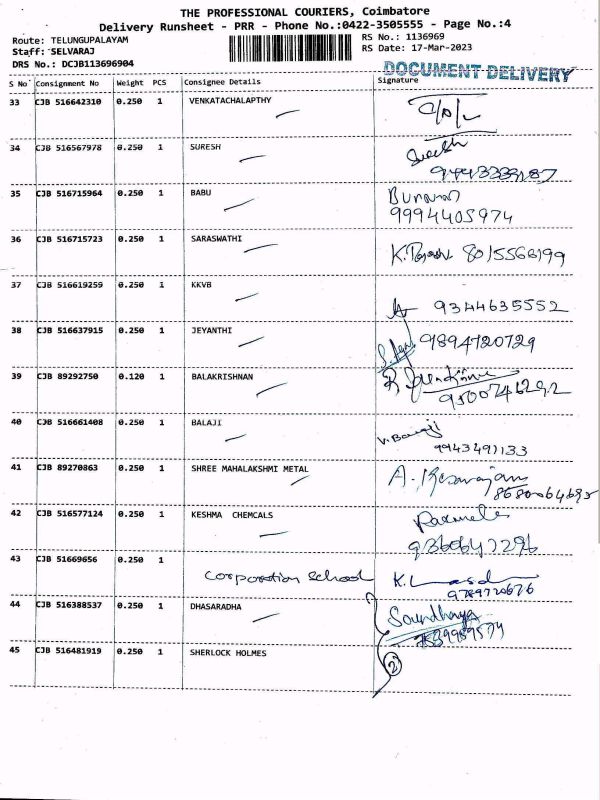 THE PROFESSIONAL COURIERS, Coimbatore
Delivery Runsheet - PRR - Phone No.:0422-3505555 - Page No.:4
Route: TELUNGUPALAYAM
RS No.: 1136969
Staff: SELVARAJ
RS Date: 17-Mar-2023
DRS No.: DCJB113696904
DOCUMENT DELIVERY
S No Consignment No Weight PCS Consignee Details Signature
33 CJB 516642310 0.250 1 VENKATACHALAPTHY
34 CJB 516567978 0.250 1 SURESH Suresh
35 CJB 515715964 0.250 1 BABU
9994405974
36 CJB 516715723 0.250 1 SARASWATHI 8015566199
37 CJB 516619259 0.250 1 KKVB 9344635552
38 CJB 516637915 0.250 1 JEYANTHI 9894720729
39 CJB 89292750 0.120 1 BALAKRISHNAN
40 CJB 516661408 0.250 1 BALAJI V. Balaji
9943491133
41 CJB 89270863 0.250 1 SHREE MAHALAKSHMI METAL
42 CJB 516577124 0.250 1 KESHMA CHEMCALS
43 CJB 51669656 0.250 1
Corporation School
9789770676
44 CJB 516388537 0.250 1 DHASARADHA Soundharya
45 CJB 516481919 0.250 1 SHERLOCK HOLMES
2